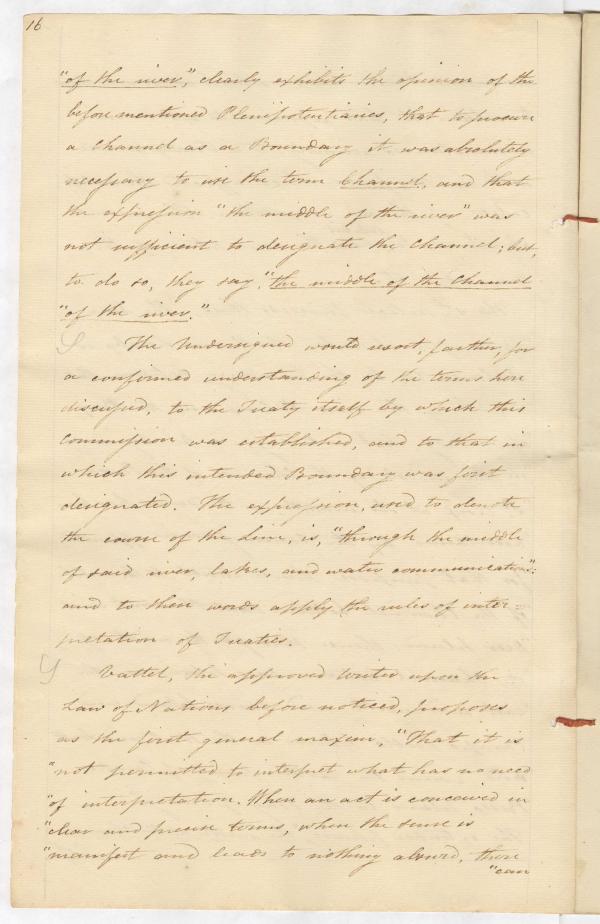 16
"of the river", clearly exhibits the opinion of the
before mentioned Plenipotentiaries, that to procure
a Channel as a Boundary it was absolutely
necessary to use the term Channel, and that
the expression "the middle of the river" was
not sufficient to designate the Channel; but,
to do so, they say, "the middle of the Channel
"of the river."
The Undersigned would resort, farther, for
a confirmed understanding of the terms here
discussed, to the Treaty itself by which this
Commission was established, and to that in
which this intended Boundary was first
designated. The expression, used to denote
the course of the Line, is, "through the middle
of said river, lakes, and water communications":
and to these words apply the rules of inter=
pretation of Treaties.
Vattel, the approved Writer upon the
Law of Nations before noticed, proposes
as the first general maxim, "That it is
"not permitted to interpret what has no need
"of interpretation. When an act is conceived in
"clear and precise terms, when the sense is
"manifest and leads to nothing absurd, there
"can